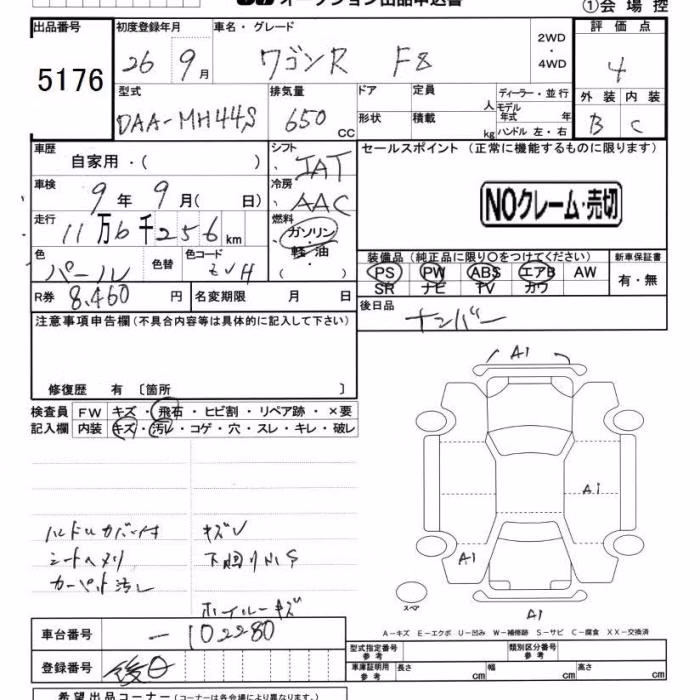 オークション出品申込書
①会場控
出品番号 初度登録年月 車名・グレード 2WD・4WD 評価点
5176 26 9月 ワゴンR FZ 4
型式 排気量 ドア 定員 人 ディーラー・並行 外装 内装
DAA-MH44S 650 cc 形状 積載 kg モデル年式 年 ハンドル 左・右 B C
車歴 自家用・( ) シフト IAT セールスポイント(正常に機能するものに限ります)
車検 9年 9月( 日) 冷房 AAC NOクレーム・売切
走行 11万6千256km 燃料 ガソリン・軽油
色 パール 色替 色コード ZVH 装備品(純正品に限り○をつけてください) 新車保証書
PS PW ABS エアB AW 有・無
SR ナビ TV カワ
R券 8,460円 名変期限 月 日 後日品 ナンバー
注意事項申告欄(不具合内容等は具体的に記入して下さい)
修復歴 有〔箇所 〕
検査員 FW キズ・飛石・ヒビ割・リペア跡・×要
記入欄 内装 キズ・汚レ・コゲ・穴・スレ・キレ・破レ
A1
A1
A1
A1
ハンドルカバー付 キズU
シートヘタリ 下回りNS
カーペット汚レ
ホイールキズ
スペア
A-キズ E-エクボ U-凹み W-補修跡 S-サビ C-腐食 XX-交換済
車台番号 -102280
型式指定番号 参考 類別区分番号 参考
登録番号 後日
車庫証明用 参考 長さ cm 幅 cm 高さ cm
希望出品コーナー(コーナーは各会場により異なります。)